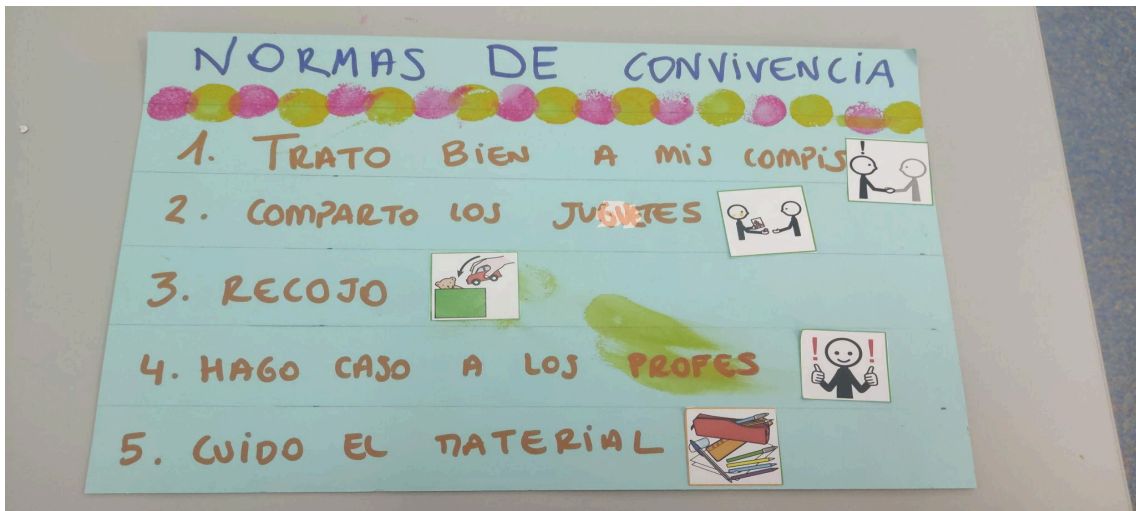 NORMAS DE CONVIVENCIA
1. TRATO BIEN A MIS COMPIS
2. COMPARTO LOS JUGUETES
3. RECOJO
4. HAGO CASO A LOS PROFES
5. CUIDO EL MATERIAL